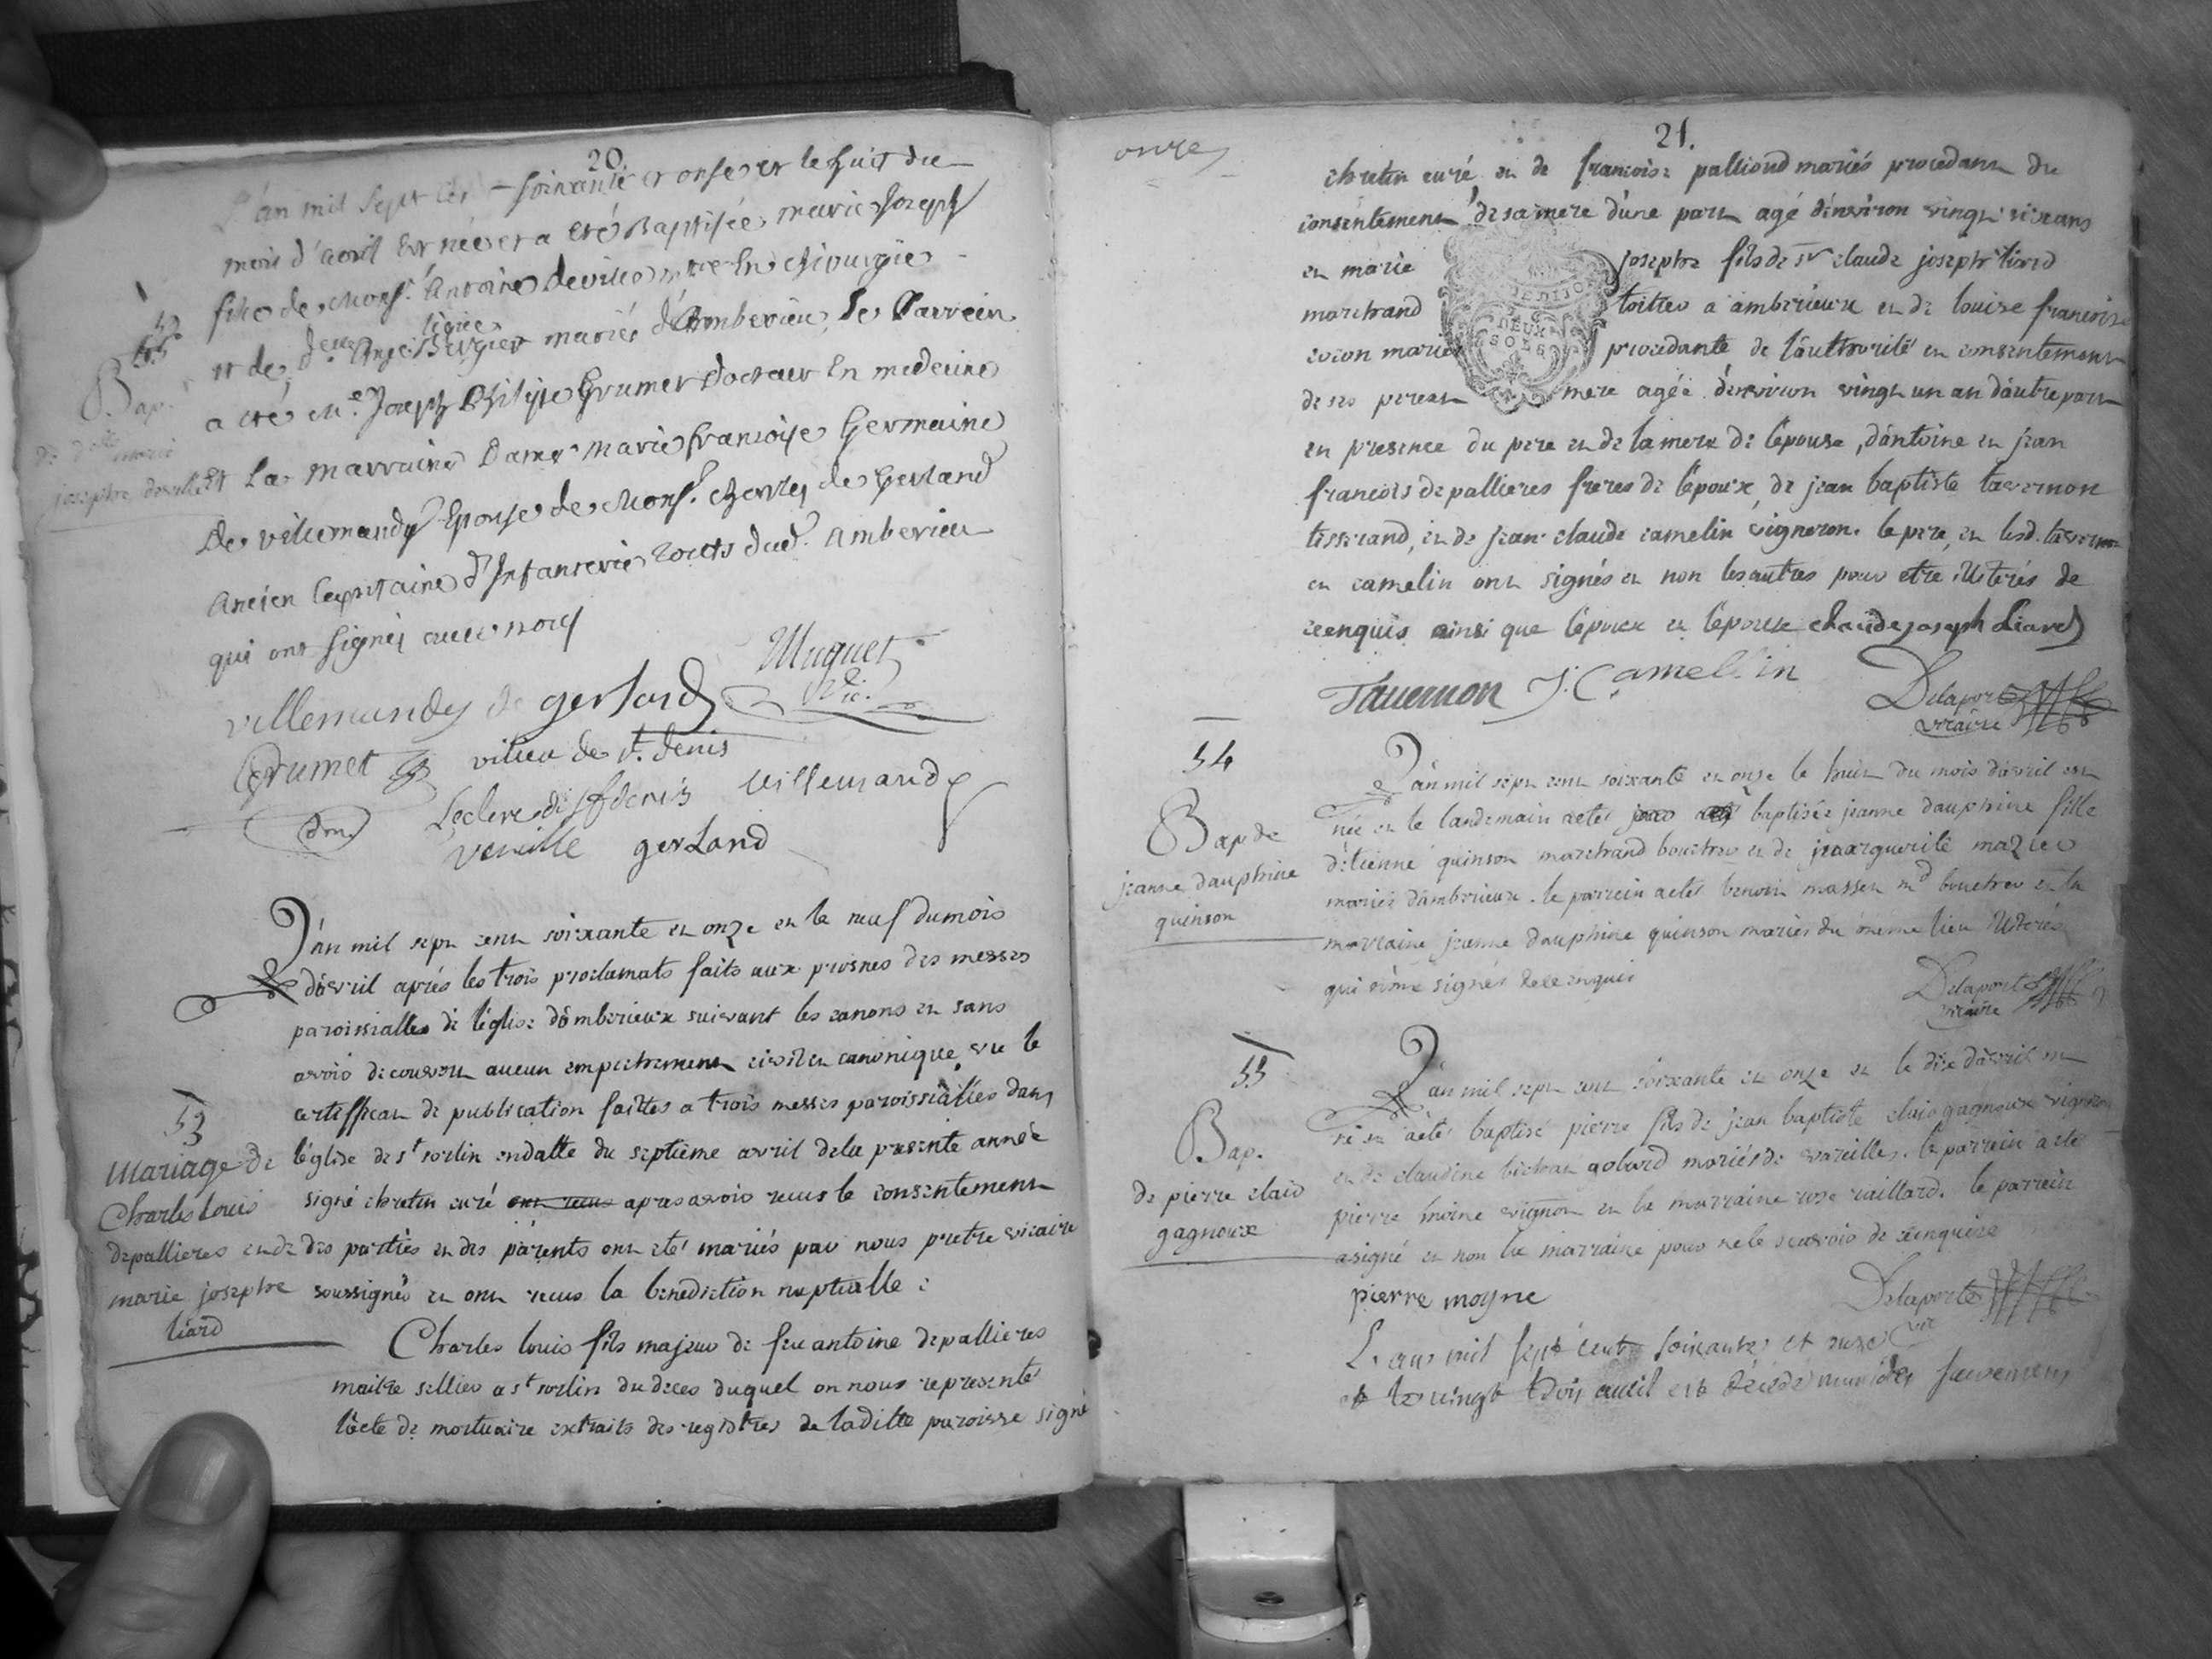 20.
L'an mil sept cent soixante et onse et le huit du
mois d'avril est née et a eté Baptisée marie Joseph
fille de Monsr. Antoine deville mtre En chirurgie
ligier
et de delle Anne Bergier mariés d'Amberieu, Le Parrein
a été Mre. Joseph Philipe Grumet Docteur En medecine
Et La marraine Dame marie françoise Germaine
De villemandy Epouse de Monsr. Charles de Gerland
Ancien Capitaine d'Infanterie touts dud. Amberieu
qui ont signés avec nous
52
Bap.
de dlle marie
josephe deville
Muguet
vic.
villemandy de gerland
Grumet
vilieu de st. denis
Leclerc de st denis villemandy
deville gerland
L'an mil sept cent soixante et onze et le neuf du mois
d'avril aprés les trois proclamats faits aux prosnes des messes
paroissialles de l'églisse d'amberieux suivant les canons et sans
avoir decouvert aucun empechement civil et canonique, vu le
certifficat de publication faittes a trois messes paroissialles dans
l'église de st sorlin en datte du septieme avril de la presente année
signé chretin curé ont recus apres avoir recus le consentement
des parties et des parents ont eté mariés par nous pretre vicaire
soussigné et ont recus la benediction nuptialle :
53
Mariage de
Charles Louis
depallieres et de
marie josephe
liard
Charles louis fils majeur de feu antoine depallieres
maitre sellier a st sorlin du deces duquel on nous represente
l'acte de mortuaire extraits des registres de laditte paroisse signé
onze
21.
chretin curé et de francoise pallioud mariés procedant du
consentement de sa mere d'une part agé d'environ vingt six ans
et marie josephe fils de sr claude joseph liard
marchand toitier a amberieux et de louise francoise
cocon mariés procedante de l'authorité et consentement
de ses pere et mere agée d'environ vingt un an d'autre part
DIJO
DEUX
SOLS
en presence du pere et de la mere de l'epouse, d'antoine et jean
francois depallieres freres de l'epoux, de jean baptiste tavernon
tisserand, et de jean claude camelin vigneron. le pere, et lesd. tavernon
et camelin ont signés et non les autres pour etre illiterés de
ce enquis ainsi que l'epoux et l'epouse claude joseph Liard
Tavernon J. Camellin Delaporte
vicaire
54
Bap de
jeanne dauphine
quinson
L'an mil sept cent soixante et onze le huit du mois d'avril est
née et le landemain a eté baptisée jeanne dauphine fille
d'étienne quinson marchand boucher et de marguerite mazuer
mariés d'amberieux. le parrein a eté benoit masson md boucher et la
marraine jeanne dauphine quinson mariés du même lieu illiterés
qui n'ont signés de ce enquis
Delaporte
vicaire
55
Bap.
de pierre clair
gagnoux
L'an mil sept cent soixante et onze et le dix d'avril est
né et a eté baptisé pierre fils de jean baptiste clair gagnoux vigneron
et de claudine bichat gobard mariés de vareilles. le parrein a eté
pierre moine vigneron et la marraine rose raillard. le parrein
a signé et non la marraine pour ne le scavoir de ce enquise
pierre moyne
Delaporte
vic
L'an mil sept cent soixante et onze
et le vingt trois avril est décédé muni des sacremens